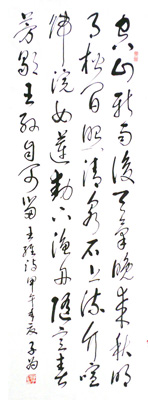 空山新雨後天氣晚來秋明
月松間照清泉石上流竹喧
歸浣女蓮動下漁舟隨意春
芳歇王孫自可留
王維詩甲午夏子